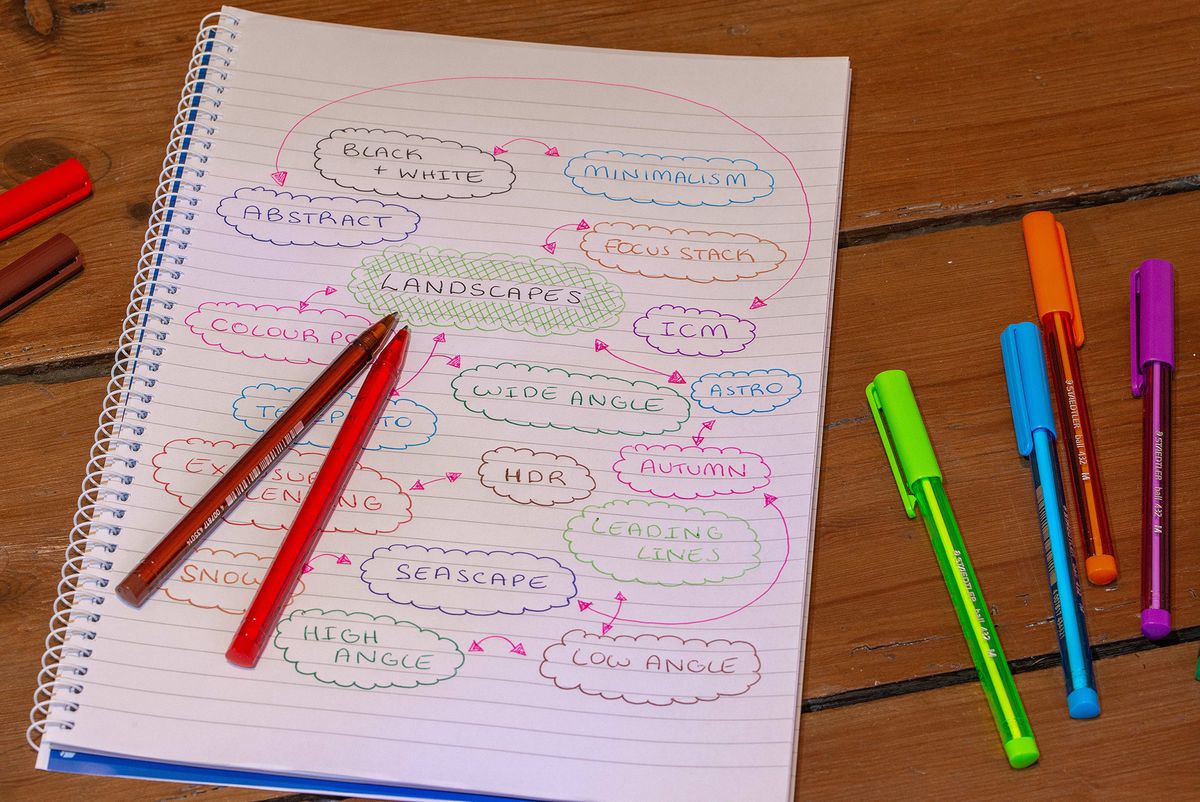 BLACK
+ WHITE
MINIMALISM
ABSTRACT
FOCUS STACK
LANDSCAPES
COLOUR
ICM
WIDE ANGLE
ASTRO
HDR
AUTUMN
LENDING
LEADING
LINES
SNOW
SEASCAPE
HIGH
ANGLE
LOW ANGLE
STAEDTLER ball 432 M
STAEDTLER ball 432 M
STAEDTLER ball 432 M